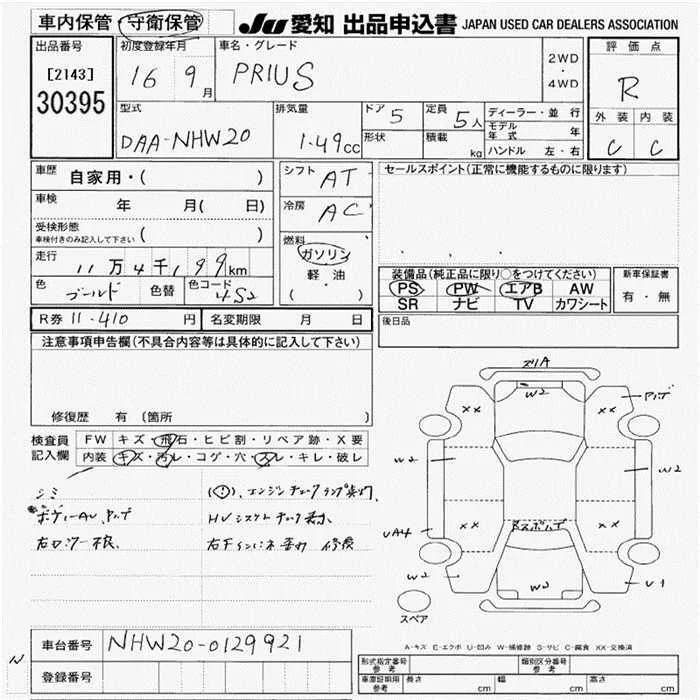 車内保管 守衛保管 JU 愛知 出品申込書 JAPAN USED CAR DEALERS ASSOCIATION
出品番号 初度登録年月 車名・グレード 評価点
[2143] 16 9月 PRIUS 2WD・4WD R
30395
型式 排気量 ドア 5 定員 5人 ディーラー・並行 外装 内装
DAA-NHW20 1.49cc 形状 積載 kg モデル年式 年 C C
ハンドル 左・右
車歴 自家用・( ) シフト AT セールスポイント(正常に機能するものに限ります)
車検 年 月( 日) 冷房 AC
受検形態
車検付きのみ記入して下さい ( ) 燃料
走行 11万4千199km ガソリン 装備品(純正品に限り○をつけてください) 新車保証書
色 ゴールド 色替 色コード 4S2 軽油 PS PW エアB AW 有・無
( ・ ) SR ナビ TV カワシート
R券 11-410 円 名変期限 月 日 後日品
注意事項申告欄(不具合内容等は具体的に記入して下さい)
修復歴 有 (箇所
検査員記入欄 FW キズ・飛石・ヒビ割・リペア跡・X要
内装 キズ・汚レ・コゲ・穴・スレ・キレ・破レ
シミ (!)、エンジンチェックランプ
HVシステムチェック
W2
XX XX
W2 W2
XX XX
W2 W3 U1
スペア
A-キズ E-エクボ U-凹み W-補修跡 S-サビ C-腐食 XX-交換済
車台番号 NHW20-0129921
登録番号
N
型式指定番号 参考 類別区分番号 参考
車庫証明用 参考 長さ cm 幅 cm 高さ cm